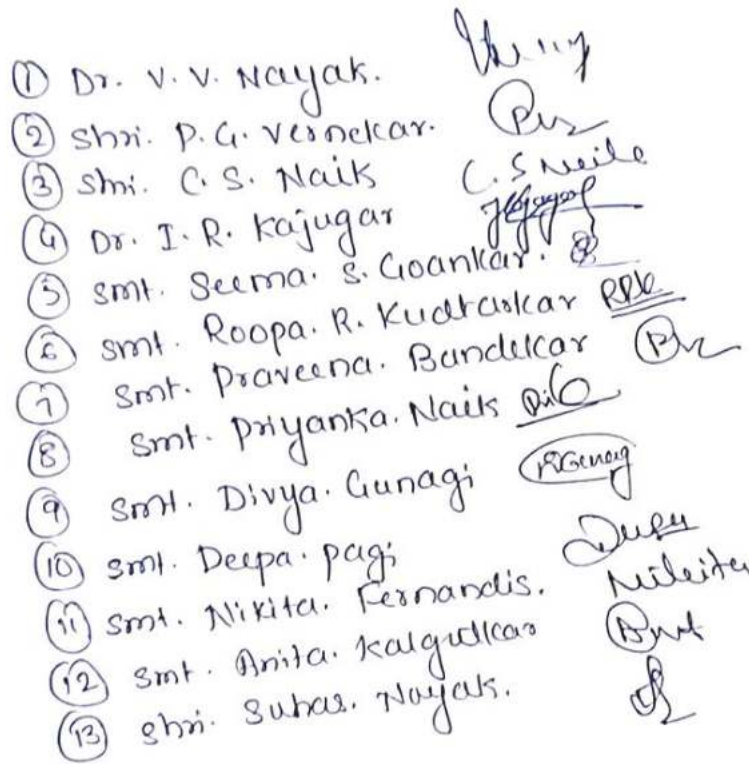 ① Dr. V. V. Nayak.
② Shri. P. G. Vernekar.
③ Shri. C. S. Naik C. S Naik
④ Dr. I. R. Kajugar
⑤ Smt. Seema. S. Goankar.
⑥ Smt. Roopa. R. Kudtarkar RRK
⑦ Smt. Praveena. Bandekar
⑧ Smt. Priyanka. Naik
⑨ Smt. Divya. Gunagi
⑩ Smt. Deepa. Pagi
⑪ Smt. Nikita. Fernandis.
⑫ Smt. Anita. Kalgutkar
⑬ Shri. Suhas. Nayak.